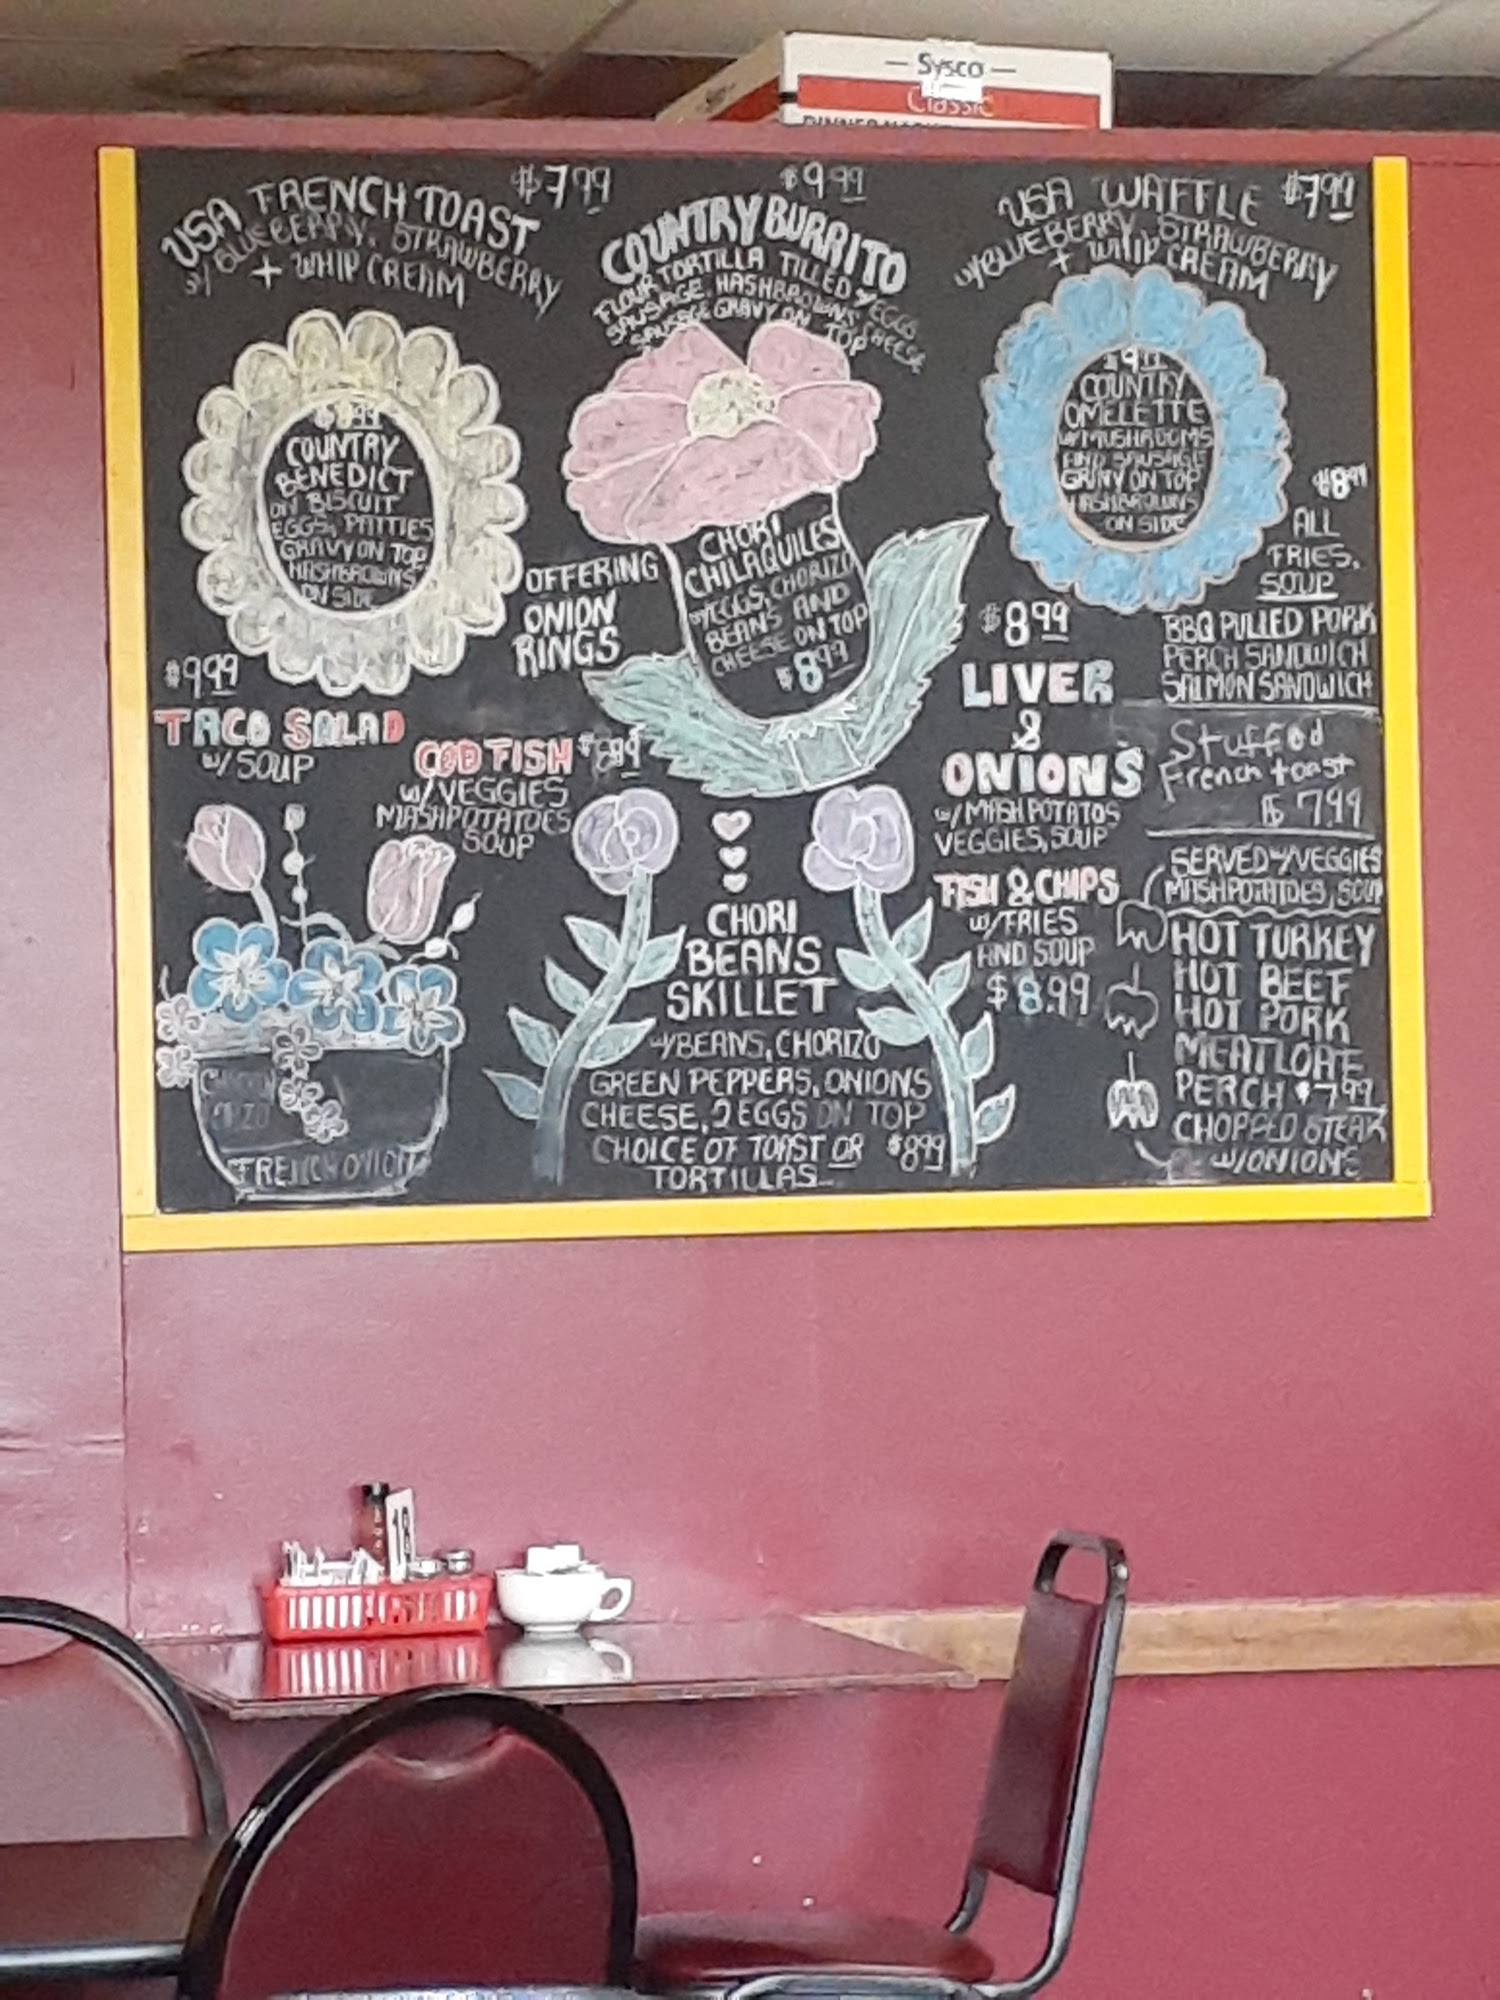 — Sysco —
Classic
$7.99
USA FRENCH TOAST
w/ BLUEBERRY, STRAWBERRY
+ WHIP CREAM
$9.99
COUNTRY BURRITO
FLOUR TORTILLA FILLED w/EGGS
SAUSAGE, HASHBROWNS, CHEESE
SAUSAGE GRAVY ON TOP
$7.99
USA WAFFLE
w/BLUEBERRY, STRAWBERRY
+ WHIP CREAM
COUNTRY
BENEDICT
ON BISCUIT
EGGS, PATTIES
GRAVY ON TOP
HASHBROWNS
ON SIDE
CHORI
CHILAQUILES
w/EGGS, CHORIZO
BEANS AND
CHEESE ON TOP
$8.99
$9.99
COUNTRY
OMELETTE
w/MUSHROOMS
AND SAUSAGE
GRAVY ON TOP
HASHBROWNS
ON SIDE
OFFERING
ONION
RINGS
$8.99
ALL
FRIES,
SOUP
BBQ PULLED PORK
PERCH SANDWICH
SALMON SANDWICH
$9.99
TACO SALAD
w/ SOUP
COD FISH $8.99
w/VEGGIES
MASHPOTATOES
SOUP
$8.99
LIVER
&
ONIONS
w/MASHPOTATOS
VEGGIES, SOUP
Stuffed
French toast
$ 7.99
FISH & CHIPS
w/FRIES
AND SOUP
$8.99
SERVED w/VEGGIES
MASHPOTATOES, SOUP
HOT TURKEY
HOT BEEF
HOT PORK
MEATLOAF
PERCH $7.99
CHOPPED STEAK
w/ONIONS
CHORI
BEANS
SKILLET
w/BEANS, CHORIZO
GREEN PEPPERS, ONIONS
CHEESE, 2 EGGS ON TOP
CHOICE OF TOAST OR $8.99
TORTILLAS
CHICKEN
ORZO
FRENCH ONION
18